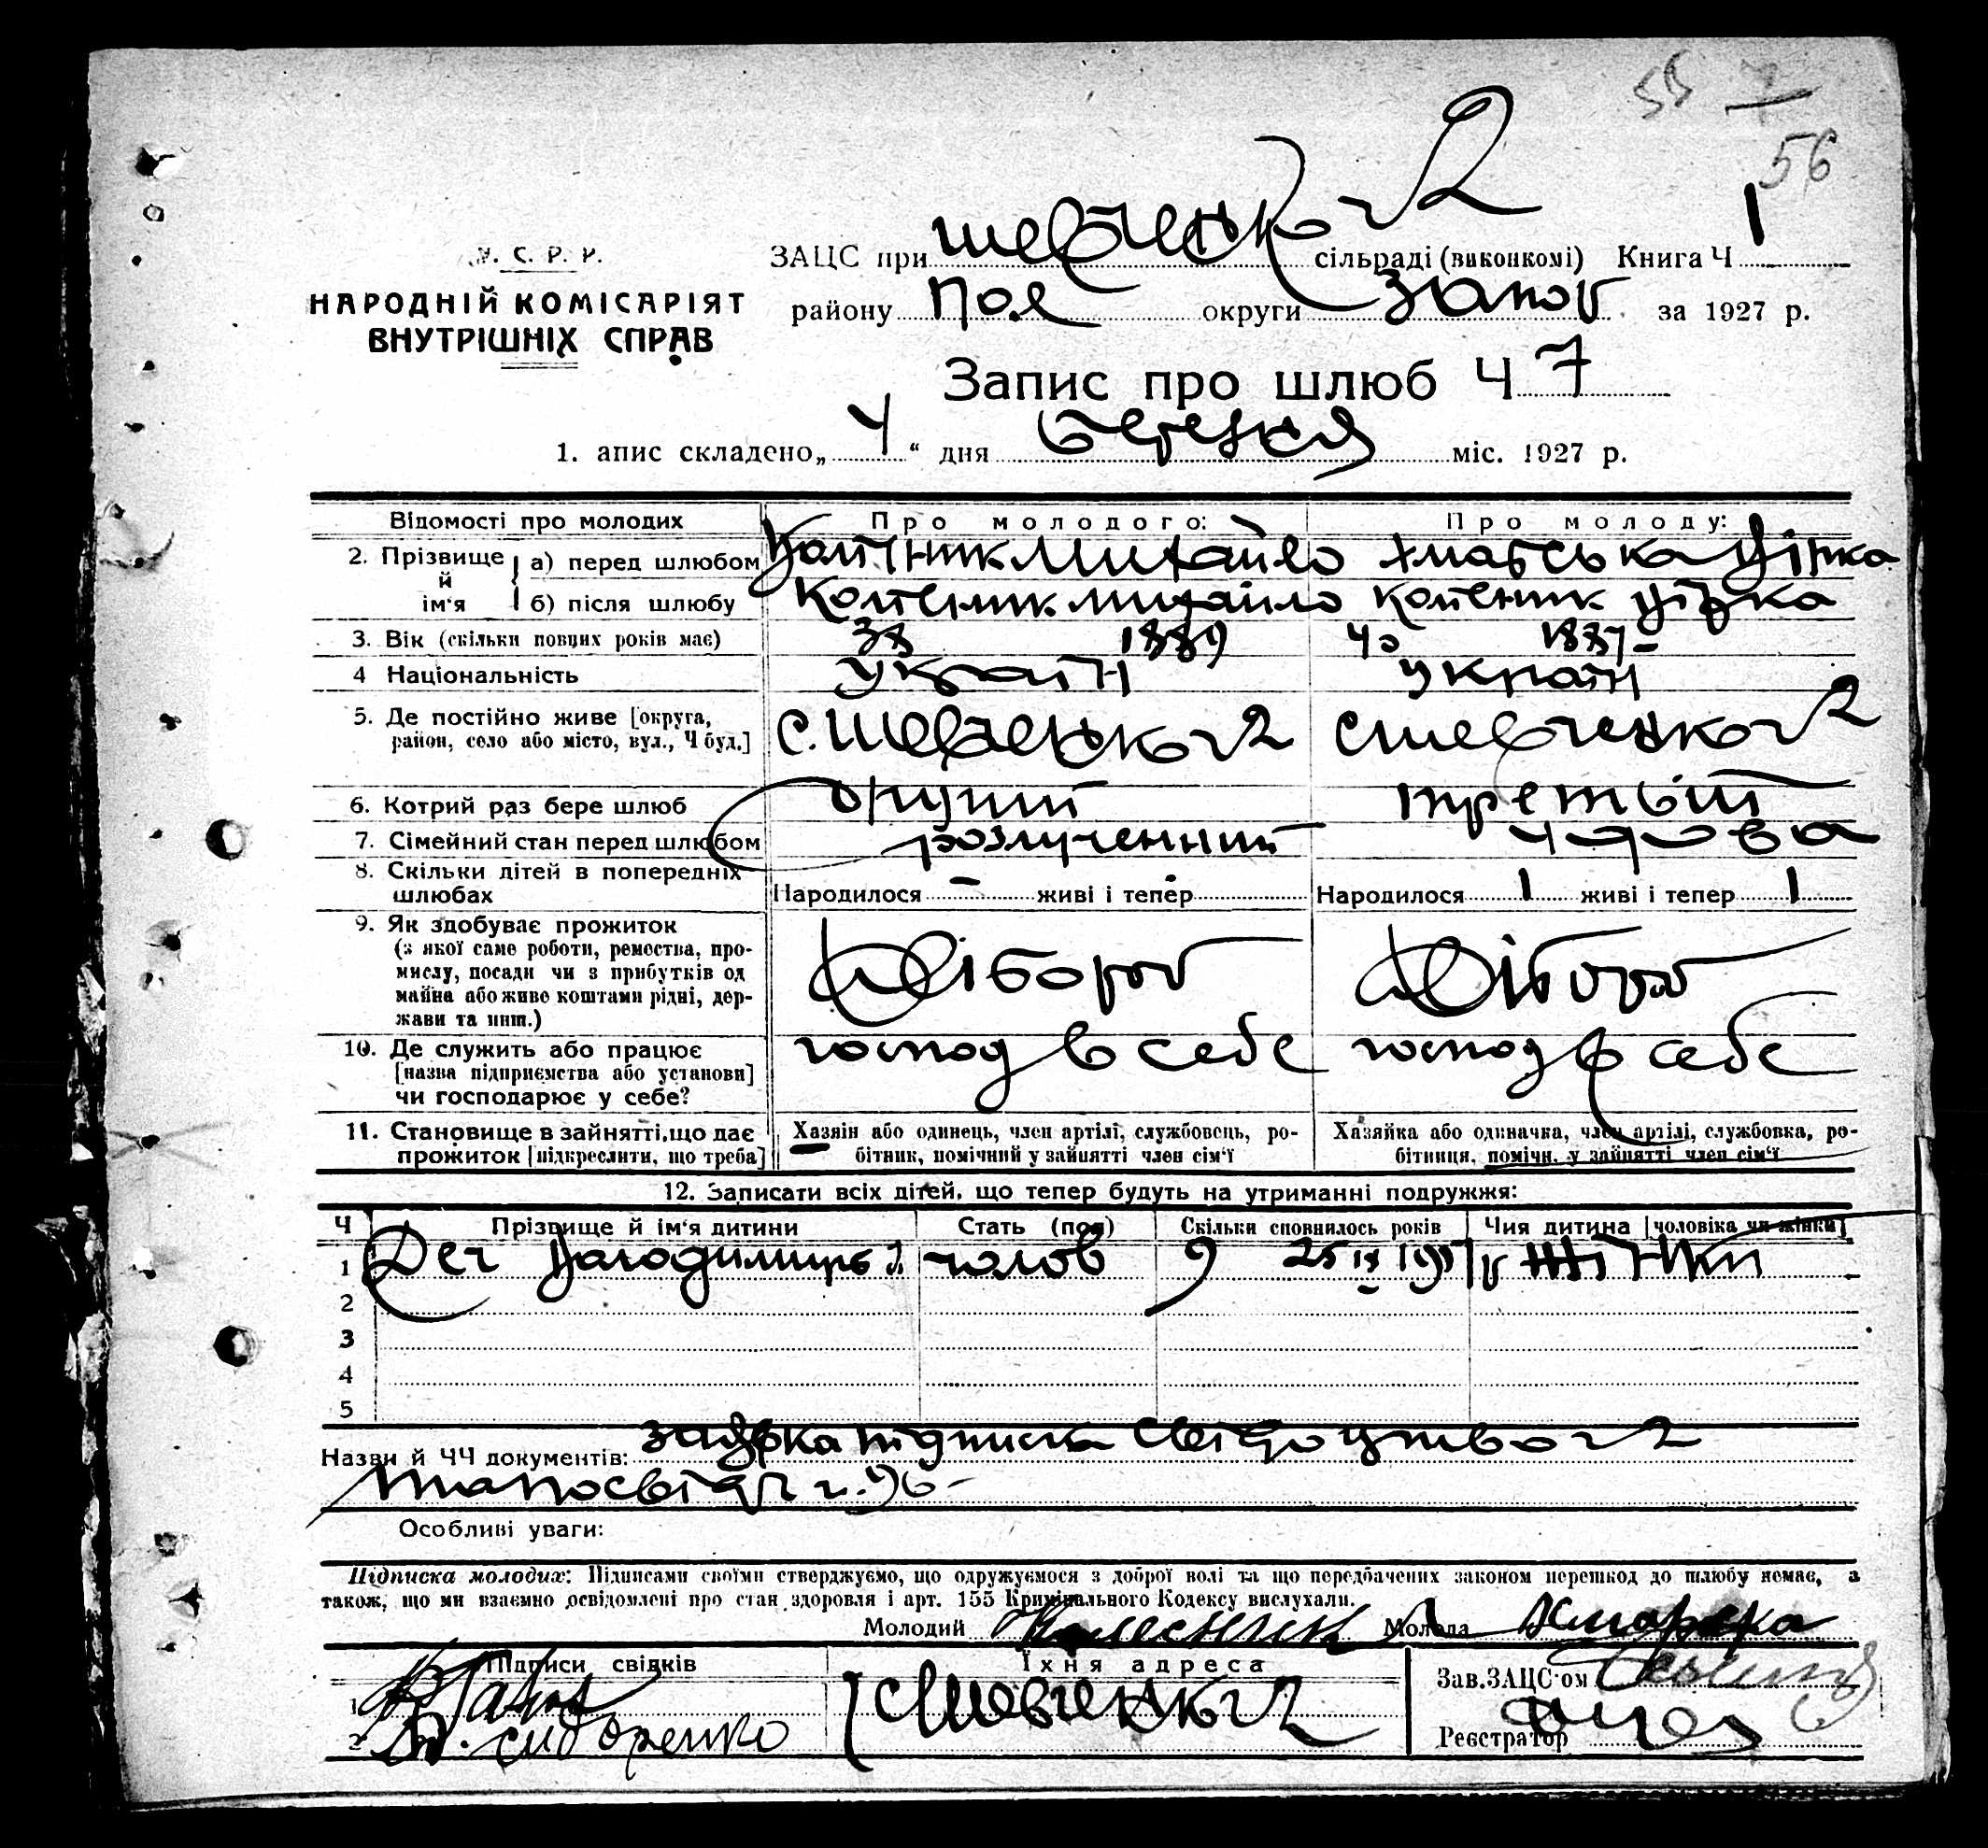 55 7
56
У. С. Р. Р.
НАРОДНІЙ КОМІСАРІЯТ
ВНУТРІШНІХ СПРАВ
ЗАЦС при Шевченков 2 сільраді (виконкомі) Книга Ч 1
району Пол округи Запор за 1927 р.
Запис про шлюб Ч 7
1. апис складено „ 4 “ дня березня міс. 1927 р.
Відомості про молодих Про молодого: Про молоду:
2. Прізвище й ім'я а) перед шлюбом Михайло
б) після шлюбу Михайло
3. Вік (скільки повних років має) 38 1889 40 1887
4 Національність україн україн
5. Де постійно живе [округа, район, село або місто, вул., Ч буд.] с. Шевченков 2 с Шевченков 2
6. Котрий раз бере шлюб другий третьий
7. Сімейний стан перед шлюбом розлученний удова
8. Скільки дітей в попередніх шлюбах Народилося - живі і тепер - Народилося 1 живі і тепер 1
9. Як здобуває прожиток (з якої саме роботи, ремества, промислу, посади чи з прибутків од майна або живе коштами рідні, держави та инш.) хлібороб хлібороб
10. Де служить або працює [назва підприємства або установи] чи господарює у себе? господ в себе господ в себе
11. Становище в зайнятті, що дає прожиток [підкреслити, що треба] Хазяін або одинець, член артілі, службовець, робітник, помічний у зайнятті член сім'ї Хазяйка або одиначка, член артілі, службовка, робітниця, помічн. у зайнятті член сім'ї
12. Записати всіх дітей, що тепер будуть на утриманні подружжя:
Ч Прізвище й ім'я дитини Стать (пол) Скільки сповнилось років Чия дитина [чоловіка чи жінки]
1 чолов 9 25 IX жінки
2
3
4
5
Назви й ЧЧ документів: заявка підписка
Особливі уваги:
Підписка молодих: Підписами своїми стверджуємо, що одружуємося з доброї волі та що передбачених законом перешкод до шлюбу немає, а
також, що ми взаємно освідомлені про стан здоровля і арт. 155 Кримінального Кодексу вислухали.
Молодий Колесник Молода
Підписи свідків Їхня адреса Зав. ЗАЦС'ом
1 с Шевченков 2
2 Сидоренко Реєстратор